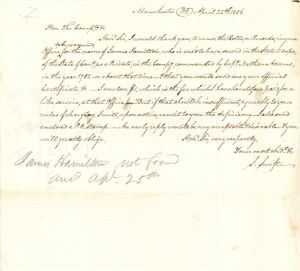 Manchester (Vt) April 22th 1856
Hon. the Compt &c
Hon. Sir, I would thank you to cause the Rolls, or Records, in your
to be examined
Office for the name of James Hamilton. He is said to have served in the State troops,
of the State of as a Private, in the Company commanded by Capt. Nathan Adams,
in the year 1782 or about that time. And that you would send me your official
Certificate I enclose $1, which is the fee which I have heretofore paid for
like service, at that Office. But if that should be insufficient, agreeably to your
rules of charging, I will, upon notice, remit to you the deficiency. I also send
enclosed a P.O. Stamp. An early reply would be very acceptable & desirable. & you
will greatly oblige. Hon. Sir, very respectfully
Yours most obt. &c
S. Swift
James Hamilton not found
ansd Apl. 25th